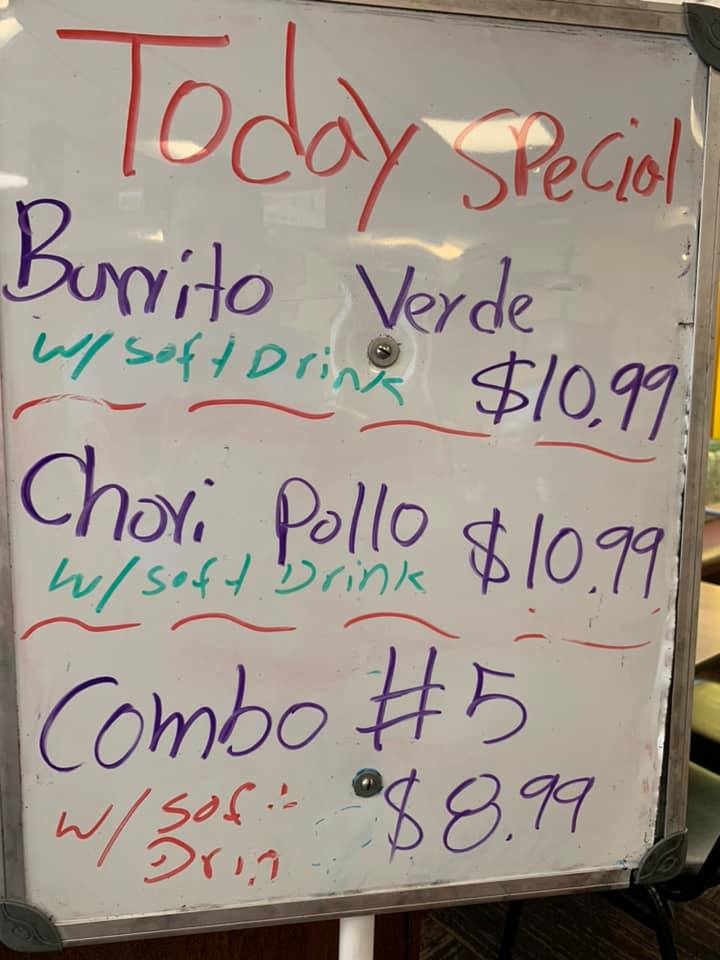 Today Special
Burrito Verde
w/ Soft Drink $10.99
Chori Pollo $10.99
w/ Soft Drink
Combo #5
w/ Soft $8.99
Drin